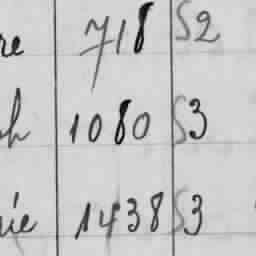 re 718 S2
ph 1080 S3
rie 1438 S3